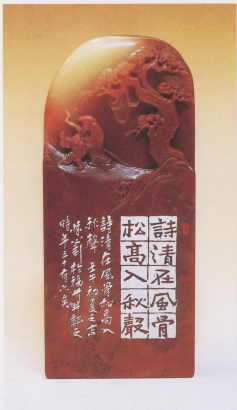 詩清在風骨
松高入秋聲
詩清在風骨松高入
秋聲 壬午初夏之吉
刻於福州并記之
時年三十有六矣